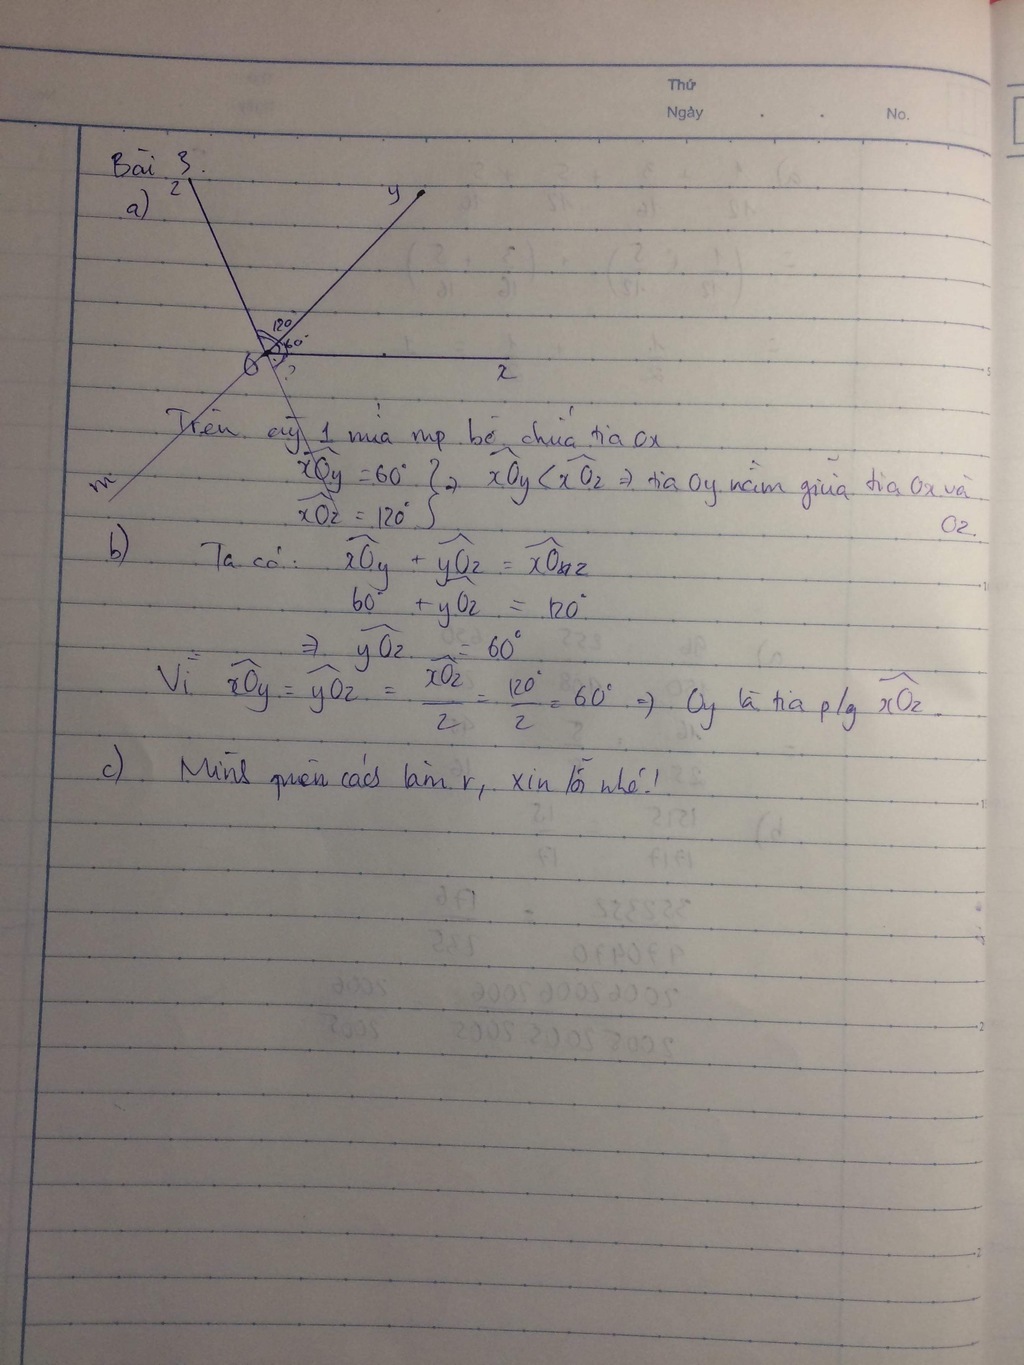 Thứ
Ngày . . No.
Bài 3.
z y
a)
120°
60°
O ?
x
Trên cùng 1 nửa mp bờ chứa tia Ox
m xOy = 60° } => xOy < xOz => tia Oy nằm giữa tia Ox và
xOz = 120° Oz.
b) Ta có: xOy + yOz = xOz
60° + yOz = 120°
=> yOz = 60°
Vì xOy = yOz = xOz/2 = 120°/2 = 60° => Oy là tia p/g xOz.
c) Mình quên cách làm r, xin lỗi nhé!